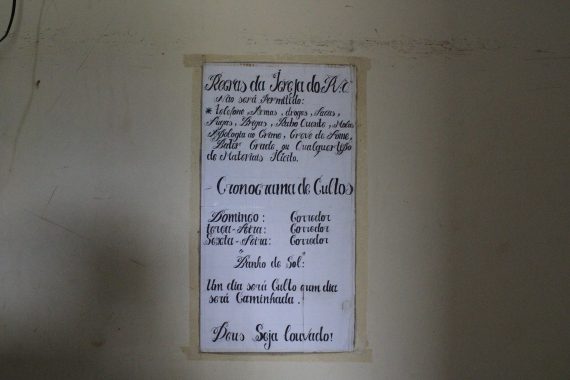 Regras da Igreja do A.C
Não será Permitido:
* telefone Armas, drogas, Facas,
Fugas, Brigas, Rabo Cuento, Malas
Apologia ao Crime, Greve de Fome,
Bater Grade, ou Cualquer tipo
de Materiais Ilícito.
Cronograma de Cultos
Domingo: Corredor
terça-Feira: Corredor
Sexta-Feira: Corredor
"Banho de Sol":
Um dia será Culto outro dia
será Caminhada.
Deus Seja Louvado!